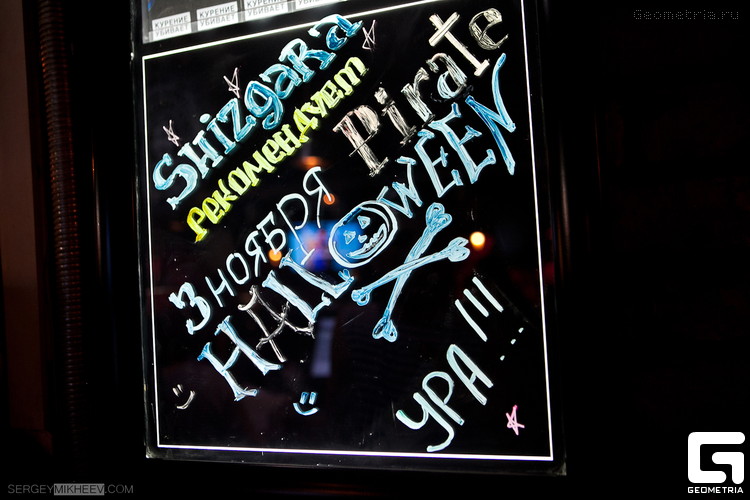 Geometria.ru
КУРЕНИЕ УБИВАЕТ
КУРЕНИЕ УБИВАЕТ
КУРЕНИЕ УБИВАЕТ
Shizgara
рекомендуем
3 ноября
Pirate
HALLOWEEN
УРА!!!...
SERGEYMIKHEEV.COM
GEOMETRIA